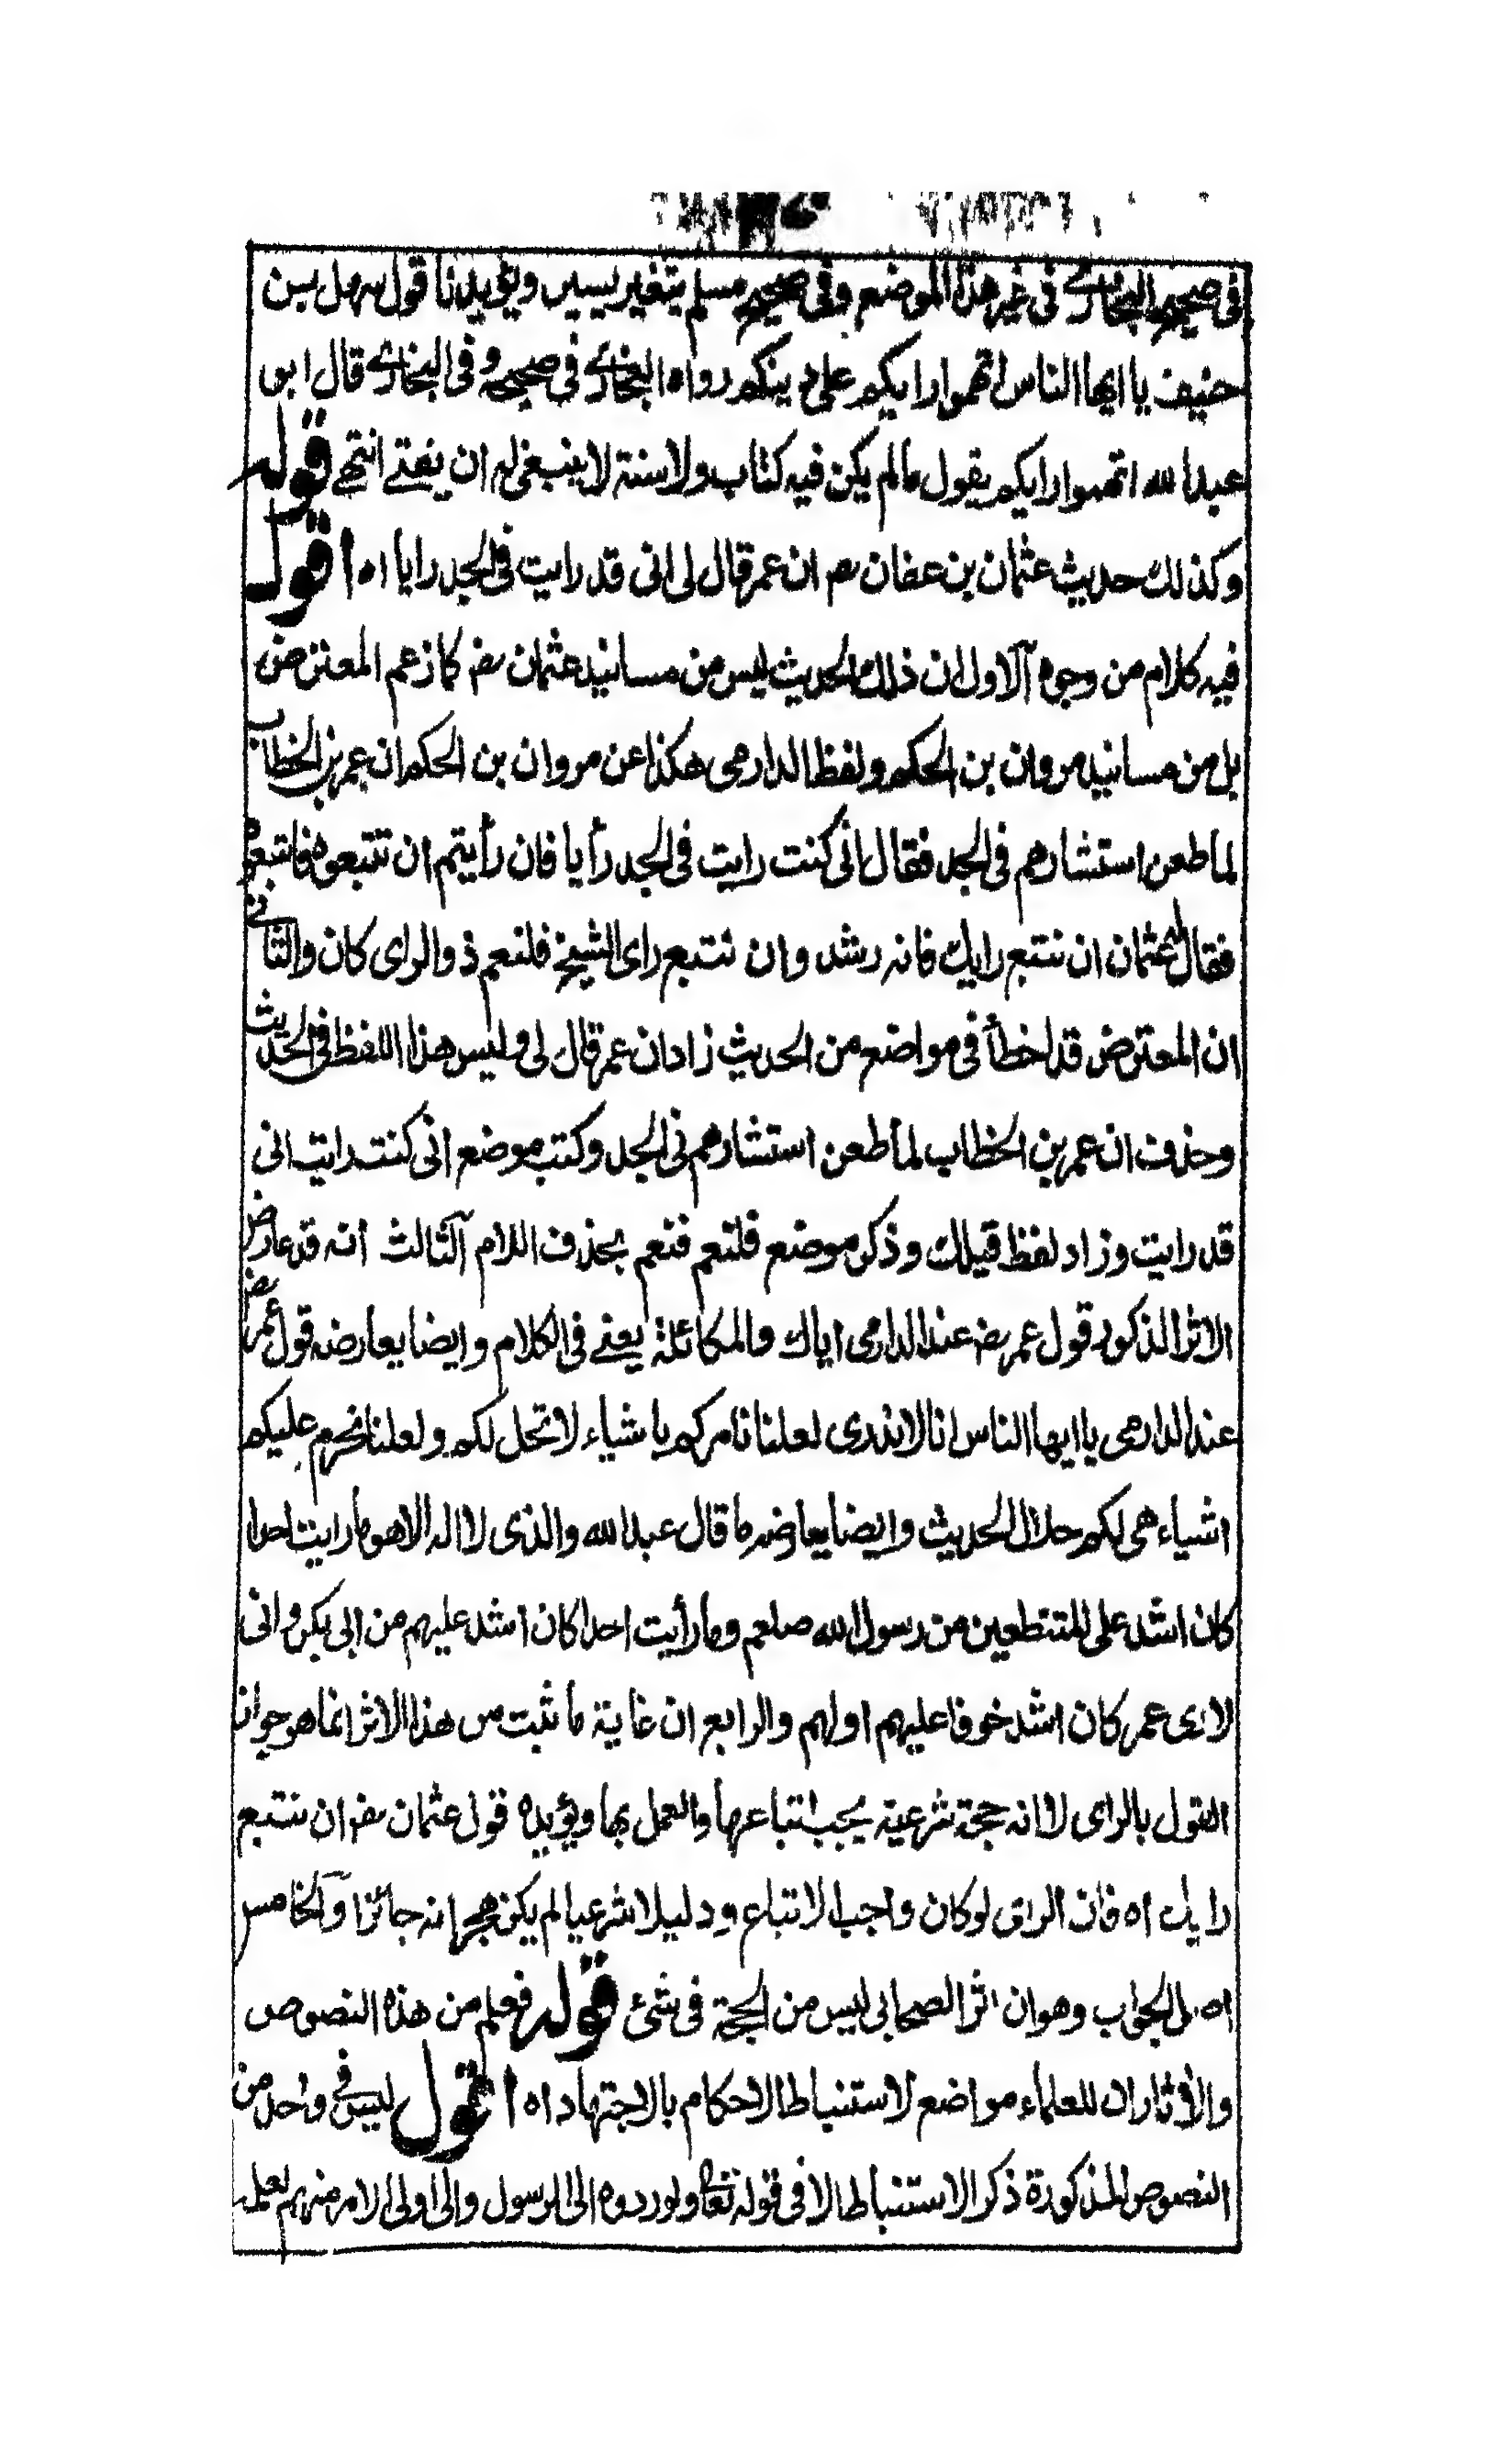 فى صحيح البخارى فى غير هذا الموضع وفى صحيح مسلم بتغير يسير ويؤيدنا قول سهل بن
حنيف يا ايها الناس اتهموا رايكم على دينكم رواه البخارى فى صحيحه وفى البخارى قال ابو
عبد الله اتهموا رايكم يقول مالم يكن فيه كتاب ولا سنة لا ينبغى له ان يفتے انتهے قوله
وكذلك حديث عثمان بن عفان رض ان عمر قال لى انى قد رايت فى الجد رايا اه اقول
فيه كلام من وجوه آلاول ان ذلك الحديث ليس من مسانيد عثمان رض كما زعم المعترض
بل من مسانيد مروان بن الحكم ولفظ الدارمى هكذا عن مروان بن الحكم ان عمر بن الخطاب
لما طعن استشارهم فى الجد فقال انى كنت رايت فى الجد رأيا فان رأيتم ان تتبعوه فاتبعوه
فقال له عثمان ان نتبع رايك فانه رشد وان نتبع راى الشيخ فلنعم ذو الراى كان والثانے
ان المعترض قد اخطأ فى مواضع من الحديث زاد ان عمر قال لى وليس هذا اللفظ فى الحديث
وحذف ان عمر بن الخطاب لما طعن استشارهم فى الجد وكتب موضع انى كنت رايت انى
قد رايت وزاد لفظ قبلك وذكر موضع فلنعم فنعم بحذف اللام آلثالث انه قد عارض
الاثر المذكور قول عمر رض عند الدارمى اياك والمكائلة يعنے فى الكلام وايضا يعارضه قول عمر رض
عند الدارمى يا ايها الناس انا لا ندرى لعلنا نامركم باشياء لا تحل لكم ولعلنا نحرم عليكم
اشياء هى لكم حلال الحديث وايضا يعارضه ما قال عبد الله والذى لا اله الا هو ما رايت احدا
كان اشد على المتنطعين من رسول الله صلعم وما رأيت احدا كان اشد عليهم من ابى بكر وانى
لارى عمر كان اشد خوفا عليهم اولهم والرابع ان غاية ما ثبت من هذا الاثر انما هو جواز
القول بالراى لا انه حجة شرعية يجب اتباعها والعمل بها ويؤيده قول عثمان رض ان نتبع
رايك اه فان الراى لو كان واجب الاتباع ودليلا شرعيا لم يكن هجرانه جائزا وآلخامس
اصل الجواب وهو ان اثر الصحابى ليس من الحجة فى شئ قوله فعلم من هذه النصوص
والآثار ان للعلماء مواضع لاستنباط الاحكام بالاجتهاد اه اقول ليس فى واحد من
النصوص المذكورة ذكر الاستنباط الا فى قوله تعالى ولو ردوه الى الرسول والى اولى الامر منهم لعلمه